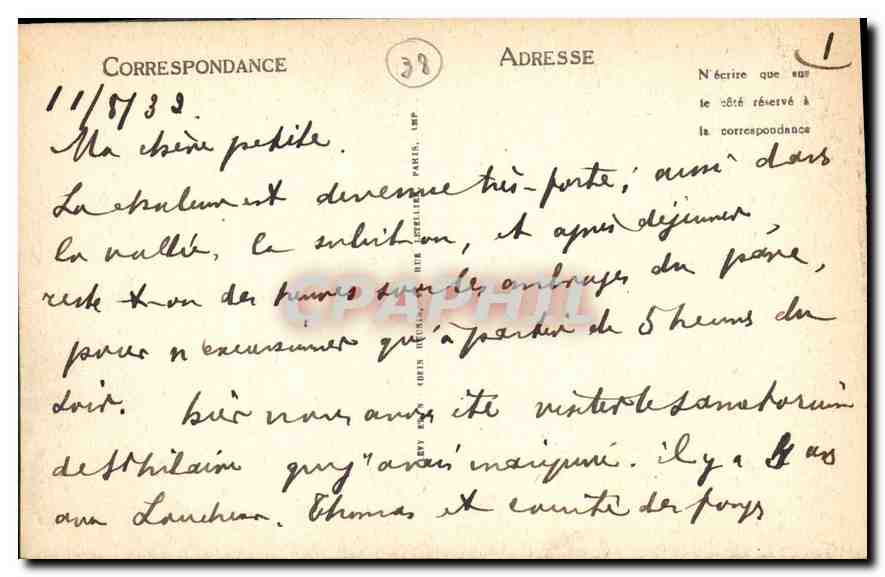 CORRESPONDANCE
38
ADRESSE
1
N'écrire que sur
le côté réservé à
la correspondance
11/8/32
Ma chère petite.
La chaleur est devenue très-forte; aussi dans
la vallée, la solution, et après déjeuner
reste t-on des heures sous les ombrages du parc,
pour n'excursionner qu'à partir de 5 heures du
soir. hier nous avons été visiter le sanatorium
de St hilaire que j'avais inauguré. il y a ans
avec Loucheur. Thomas et comité des forges
LEVY ET NEURDEIN REUNIS, RUE LETELLIER, PARIS. IMP
CPAPHIL